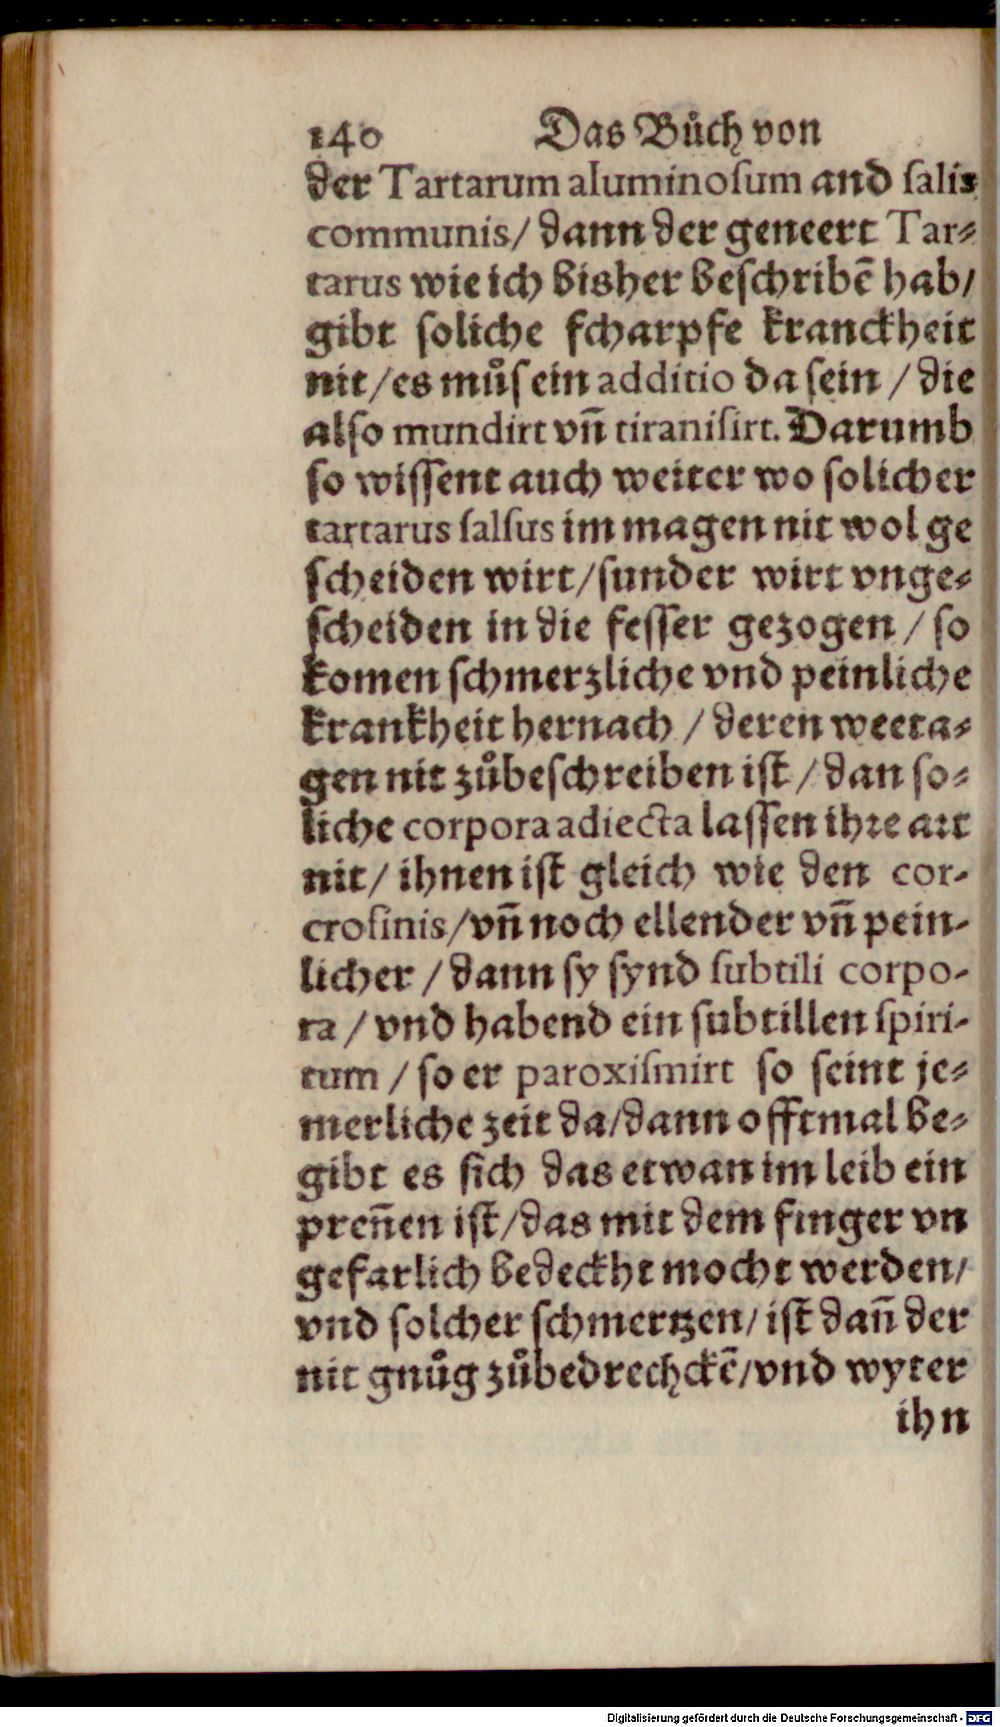 140 Das Bůch von
der Tartarum aluminosum and salis
communis/ dann der geneert Tar⸗
tarus wie ich bisher beschribē hab/
gibt soliche scharpfe kranckheit
nit/es můs ein additio da sein / die
also mundirt vn̄ tiranisirt. Darumb
so wissent auch weiter wo solicher
tartarus salsus im magen nit wol ge
scheiden wirt/sunder wirt vnge⸗
scheiden in die fesser gezogen / so
komen schmerzliche vnd peinliche
krankheit hernach / deren weeta⸗
gen nit zůbeschreiben ist / dan so⸗
liche corpora adiecta lassen ihre art
nit/ ihnen ist gleich wie den cor-
crosinis/vn̄ noch ellender vn̄ pein-
licher / dann sy synd subtili corpo-
ra / vnd habend ein subtillen spiri-
tum / so er paroxismirt so seint je⸗
merliche zeit da/dann offtmal be⸗
gibt es sich das etwan im leib ein
pren̄en ist/das mit dem finger vn
gefarlich bedeckht mocht werden/
vnd solcher schmertzen/ ist dan̄ der
nit gnůg zůbedrechckē/vnd wyter
ihn
Digitalisierung gefördert durch die Deutsche Forschungsgemeinschaft - DFG